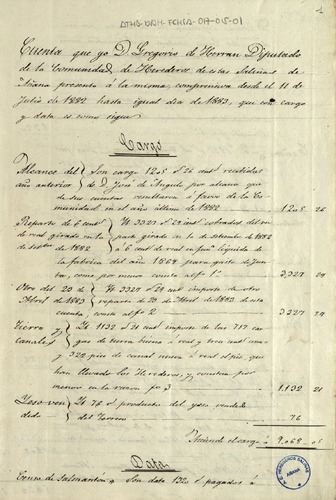 ATHA-DAH-FCHSA-017-015-01
Cuenta que yo D. Gregorio de Herran Diputado
de la Comunidad de Herederos de estas Salinas de
Añana presento á la misma, comprensiva desde el 11 de
Julio de 1882 hasta igual dia de 1883, que con cargo
y data es como sigue
Cargo
Alcance del año anterior
Son cargo 1205 26 cent recibidos
de D. José de Angulo por alcance que
de sus cuentas resultaron á favor de la Co-
munidad en el año último de 1882
1205 26
Reparto de 6 cent de real girado en 6 de Setbre de 1882
It 3327 29 cent cobrados del
para girado en 6 de Setiembre de 1882
á 6 cent de real en fan líquida de
la fabrica del año 1869 para gastos de Jun-
ta, como por menor consta al fº 1º
3,327 29
Otro del 20 de Abril de 1883
It 3327 29 cent importe de otro
reparto de 20 de Abril de 1883 de esta
cuenta, consta al fº 2
3327 29
Tierra y canales
It 1132 21 cent importe de las 717 car-
gas de tierra buena á real y tres cent una
y 329 pies de canal nueva á real el pie que
han llevado los Herederos, y consta por
menor en la misma fº 3
1,132 21
Yeso vendido
It 76 producto del yeso vendido
del Terreno
76
Asciende el cargo á 9,068 05
Data
Trena de Salmantón
Son data 1320 pagados á